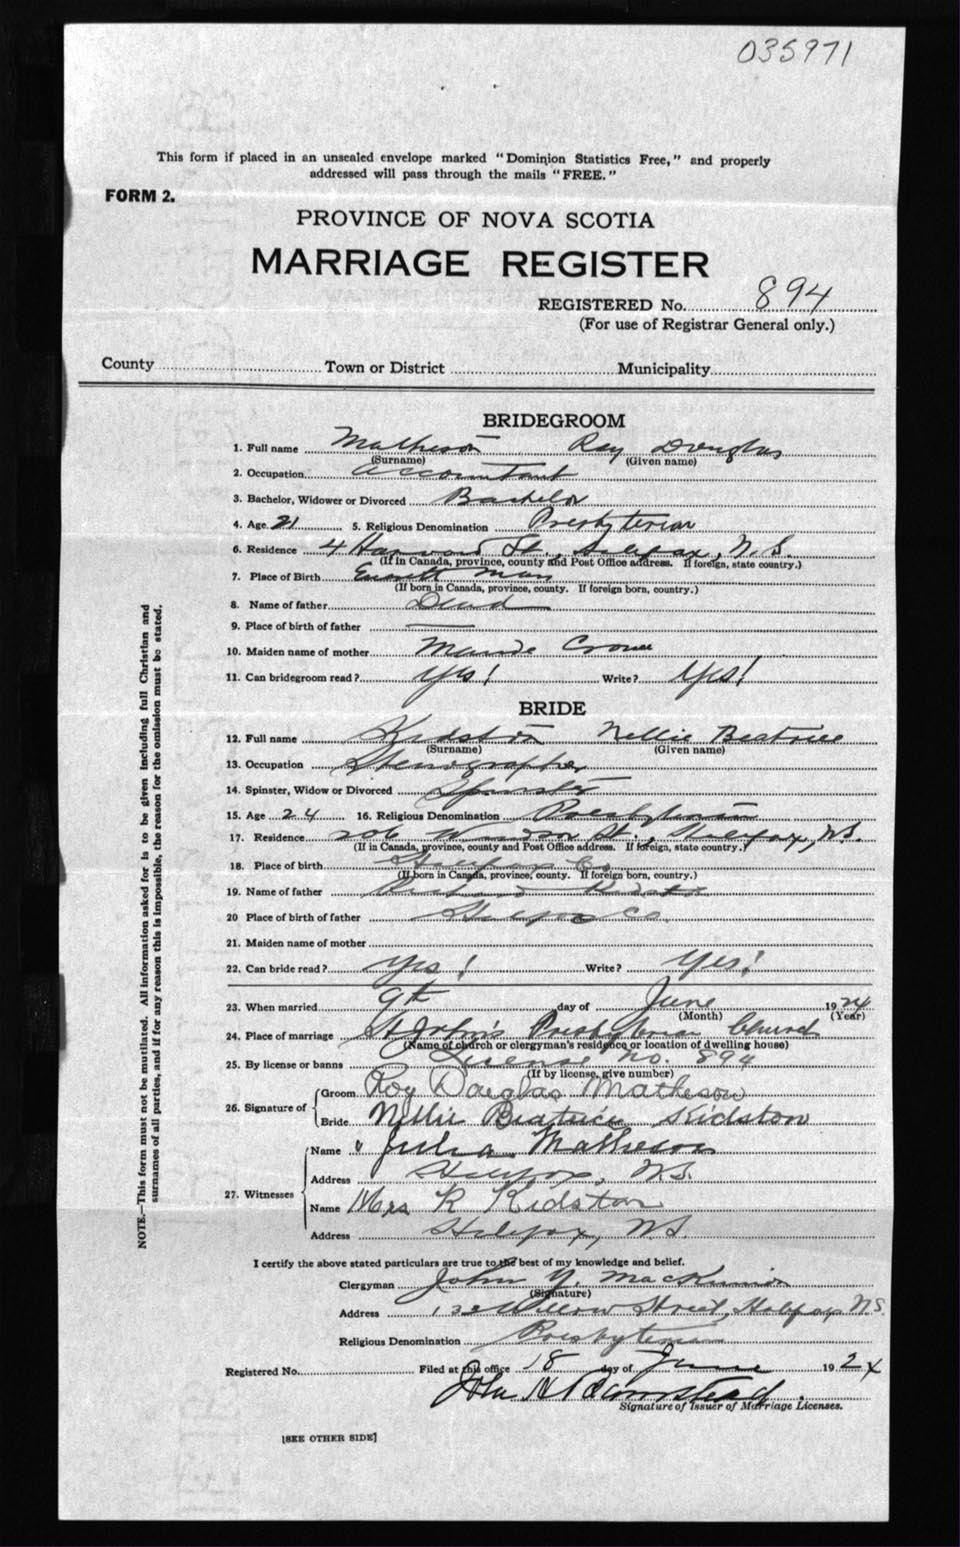 035971
This form if placed in an unsealed envelope marked "Dominion Statistics Free," and properly
addressed will pass through the mails "FREE."
FORM 2.
PROVINCE OF NOVA SCOTIA
MARRIAGE REGISTER
REGISTERED No. 894
(For use of Registrar General only.)
County Town or District Municipality
BRIDEGROOM
1. Full name Matheson Roy Douglas
(Surname) (Given name)
2. Occupation. Accountant
3. Bachelor, Widower or Divorced Bachelor
4. Age. 21 5. Religious Denomination Presbyterian
6. Residence 4 Harvard St., Halifax, N.S.
(If in Canada, province, county and Post Office address. If foreign, state country.)
7. Place of Birth Everett Mass
(If born in Canada, province, county. If foreign born, country.)
8. Name of father Dead
9. Place of birth of father
10. Maiden name of mother Maude
11. Can bridegroom read? Yes! Write? Yes!
BRIDE
12. Full name Kidston Nellie Beatrice
(Surname) (Given name)
13. Occupation Stenographer
14. Spinster, Widow or Divorced Spinster
15. Age 24 16. Religious Denomination Presbyterian
17. Residence 206 Windsor St., Halifax, N.S.
(If in Canada, province, county and Post Office address. If foreign, state country.)
18. Place of birth Halifax Co.
(If born in Canada, province, county. If foreign born, country.)
19. Name of father Kidston
20 Place of birth of father Halifax Co.
21. Maiden name of mother
22. Can bride read? Yes! Write? Yes!
23. When married 9th day of June 1924
(Month) (Year)
24. Place of marriage St John's Presbyterian Church
(Name of church or clergyman's residence or location of dwelling house)
25. By license or banns License No. 894
(If by license, give number)
26. Signature of Groom Roy Douglas Matheson
Bride Nellie Beatrice Kidston
27. Witnesses Name " Julia Matheson
Address Halifax, N.S.
Name Mrs R Kidston
Address Halifax, N.S.
I certify the above stated particulars are true to the best of my knowledge and belief.
Clergyman John Y. MacKinnon
(Signature)
Address 132 Willow Street, Halifax N.S.
Religious Denomination Presbyterian
Registered No. Filed at this office 18 day of June 1924
John H Barnstead
Signature of Issuer of Marriage Licenses.
[SEE OTHER SIDE]
NOTE.—This form must not be mutilated. All information asked for is to be given including full Christian and
surnames of all parties, and if for any reason this is impossible, the reason for the omission must be stated.